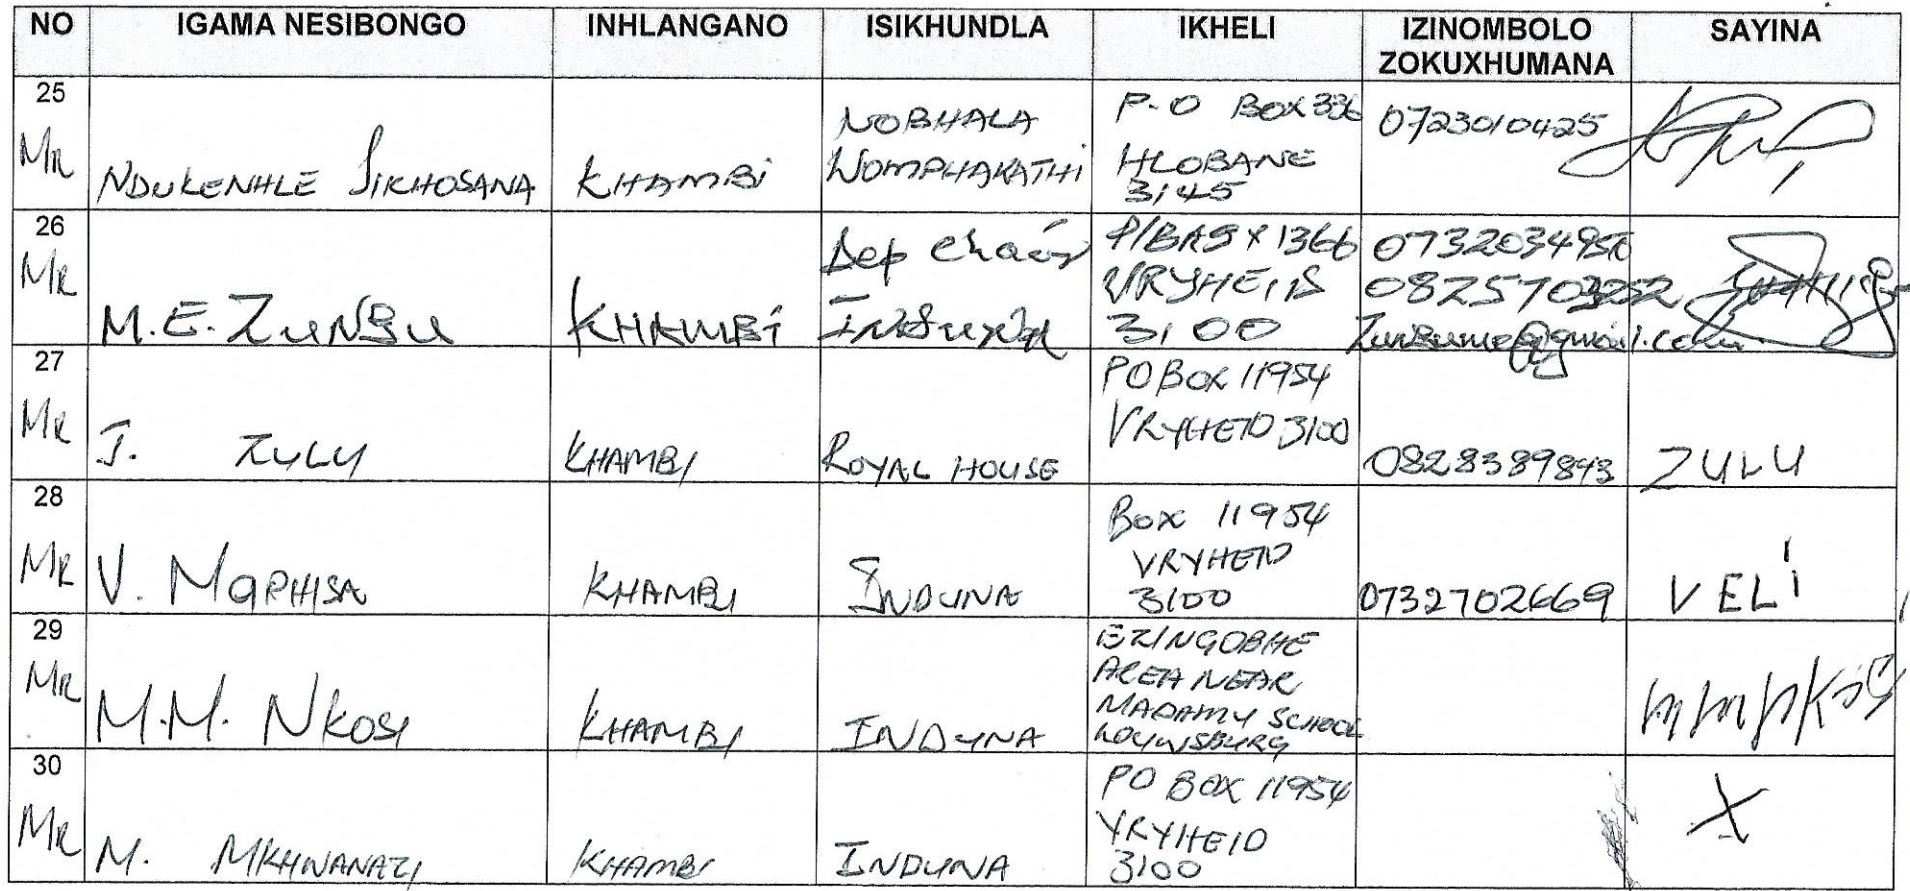 NO IGAMA NESIBONGO INHLANGANO ISIKHUNDLA IKHELI IZINOMBOLO ZOKUXHUMANA SAYINA
25
MR
NDUKENHLE SIKHOSANA
KHAMBi
NOBHALA
WOMPHAKATHI
P.O BOX 336
HLOBANE
3145
0723010425
26
MR
M.E. ZUNGU
KHAMBi
Dep Chair
INDUNA
P/BAG X 1366
VRYHEID
3100
0732034950
27
MR
J. ZULU
KHAMBI
ROYAL HOUSE
PO BOX 11954
VRYHEID 3100
0828389843
ZULU
28
MR
V. MAPHISA
KHAMBI
INDUNA
BOX 11954
VRYHEID
3100
0732702669
VELi
29
MR
M.M. NKOSI
KHAMBI
INDUNA
EZINGOBHE
AREA NEAR
SCHOOL
LOUWSBURG
30
MR
M. MKHWANAZI
KHAMBI
INDUNA
PO BOX 11954
VRYHEID
3100
X